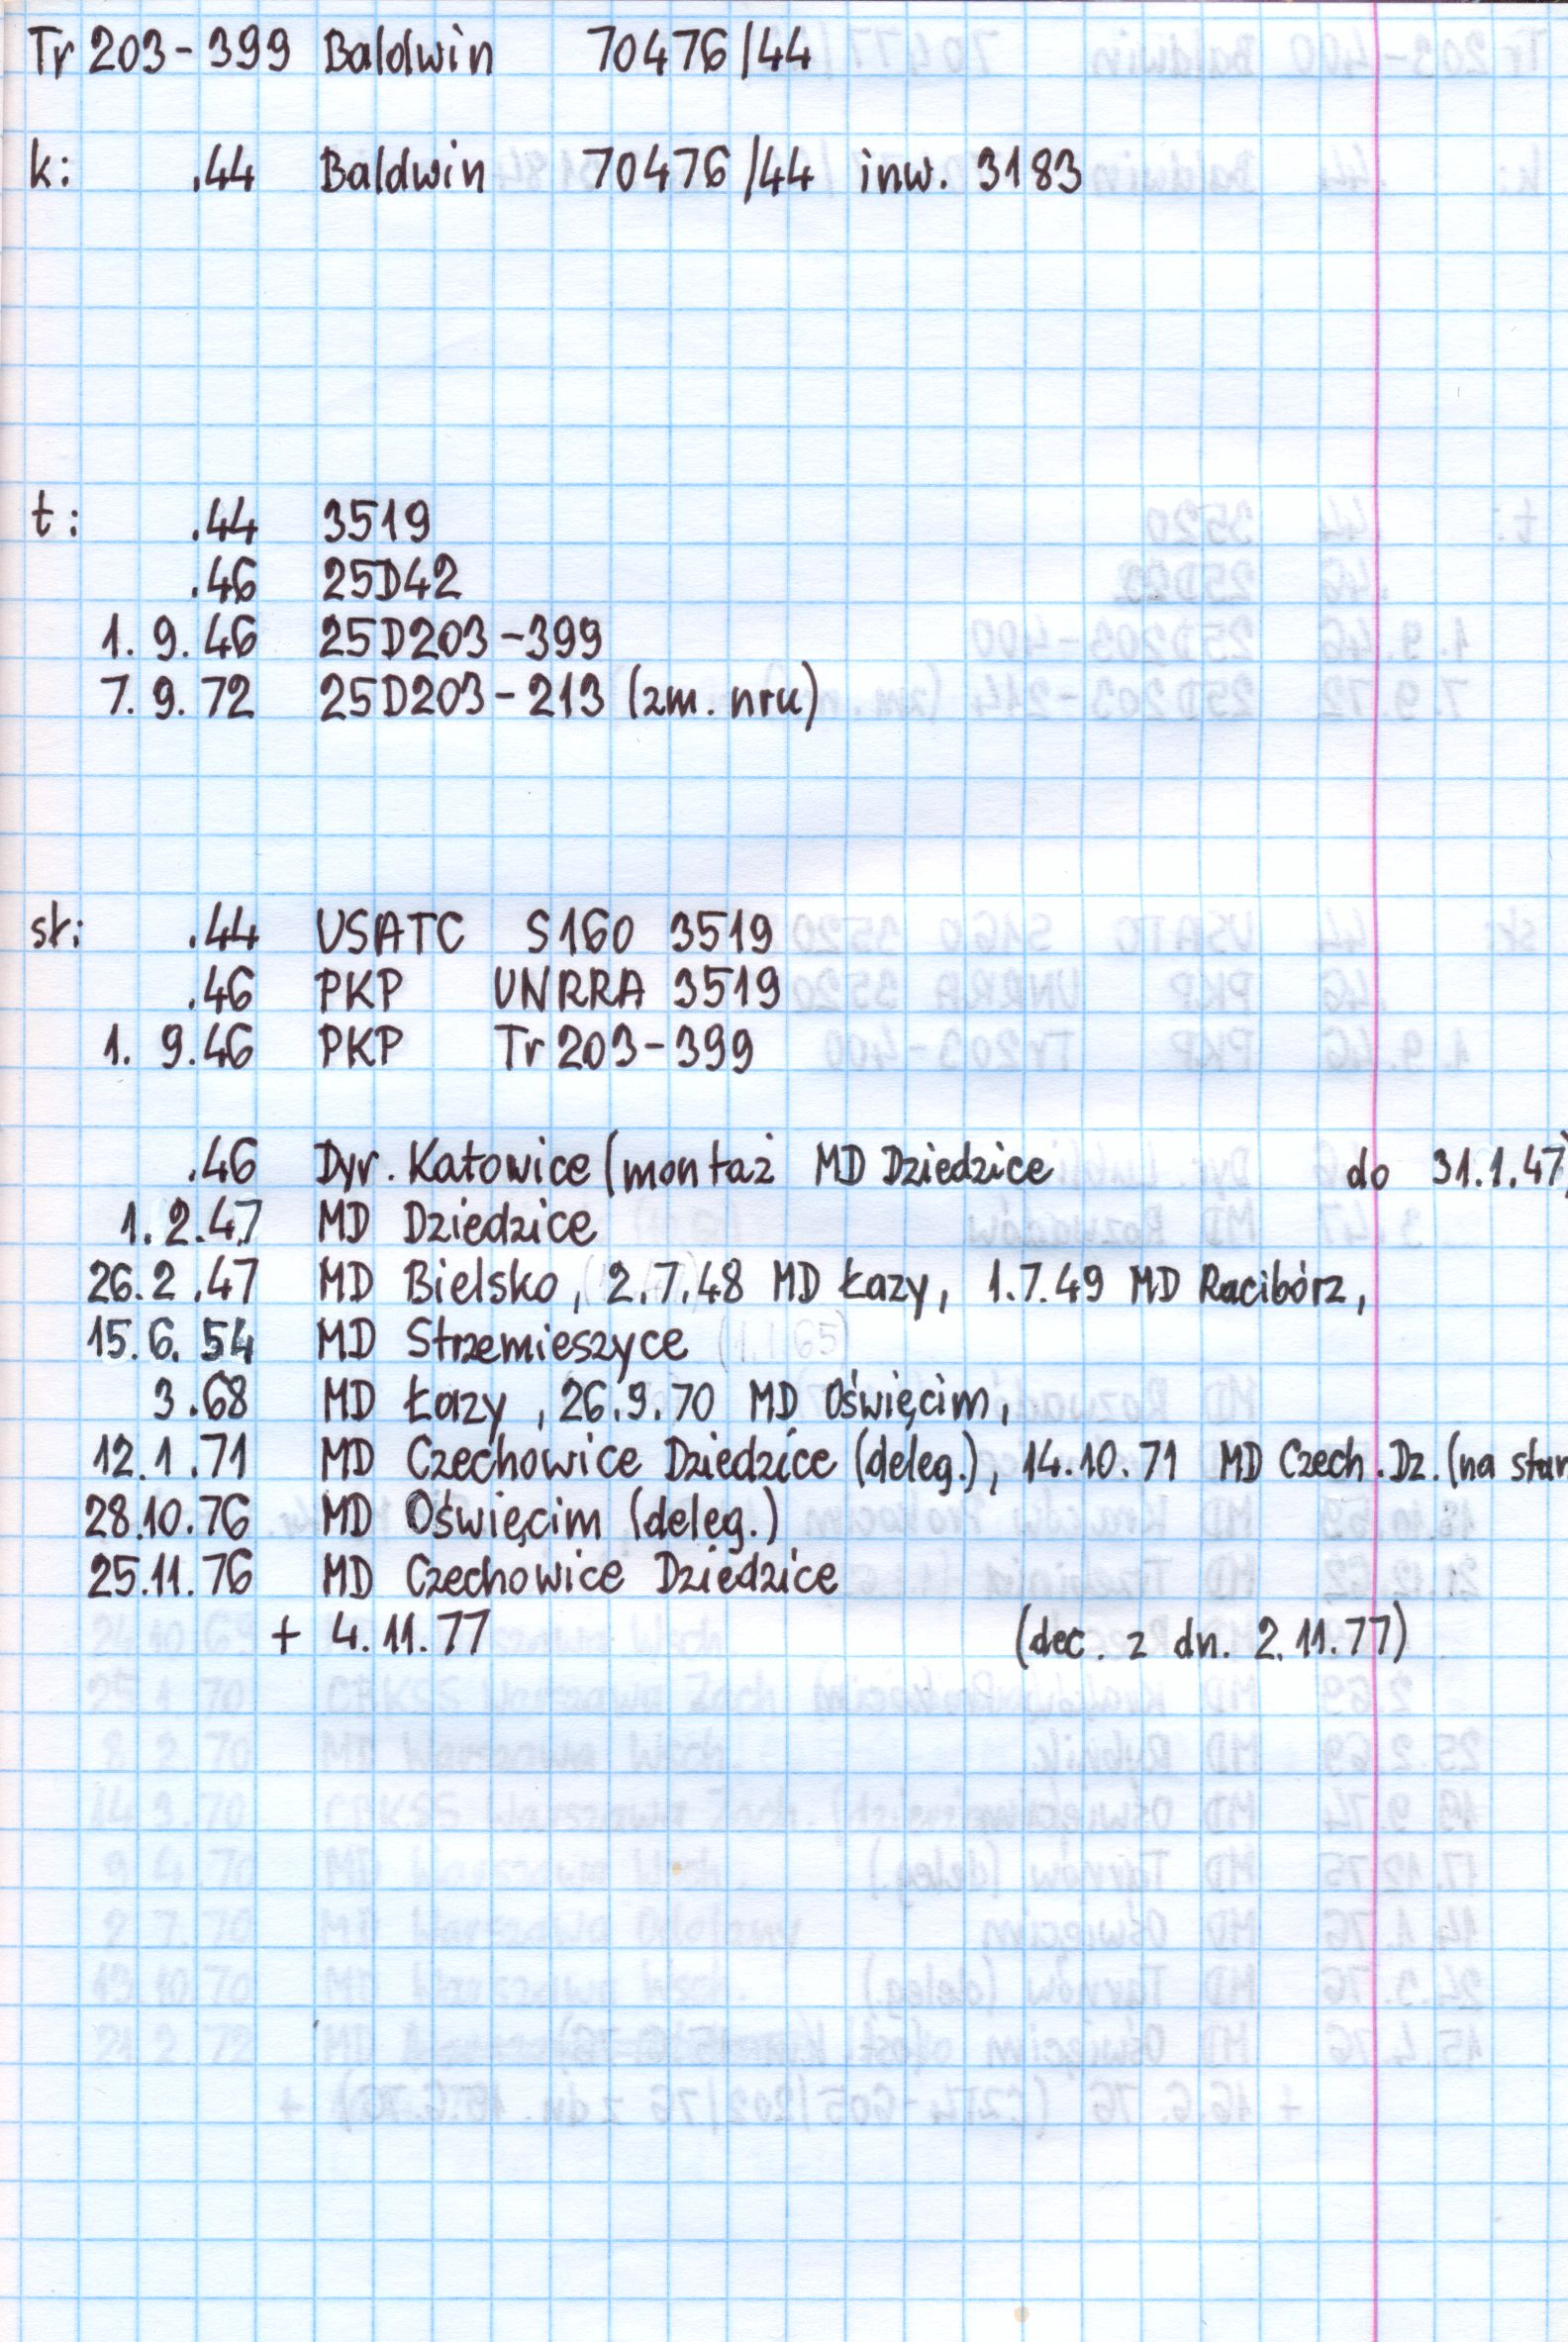 Tr 203-399 Baldwin 70476/44
k: .44 Baldwin 70476/44 inw. 3183
t: .44 3519
.46 25D42
1. 9. 46 25D203-399
7. 9. 72 25D203-213 (zm. nru)
sł: .44 USATC S160 3519
.46 PKP UNRRA 3519
1. 9.46 PKP Tr 203-399
.46 Dyr. Katowice (montaż MD Dziedzice do 31.1.47)
1. 2.47 MD Dziedzice
26.2.47 MD Bielsko, 2.7.48 MD Łazy, 1.7.49 MD Racibórz,
15.6.54 MD Strzemieszyce (1.1.65)
3.68 MD Łazy, 26.9.70 MD Oświęcim,
12.1.71 MD Czechowice Dziedzice (deleg.), 14.10.71 MD Czech. Dz. (na star
28.10.76 MD Oświęcim (deleg.)
25.11.76 MD Czechowice Dziedzice
+ 4.11.77 (dec. z dn. 2.11.77)